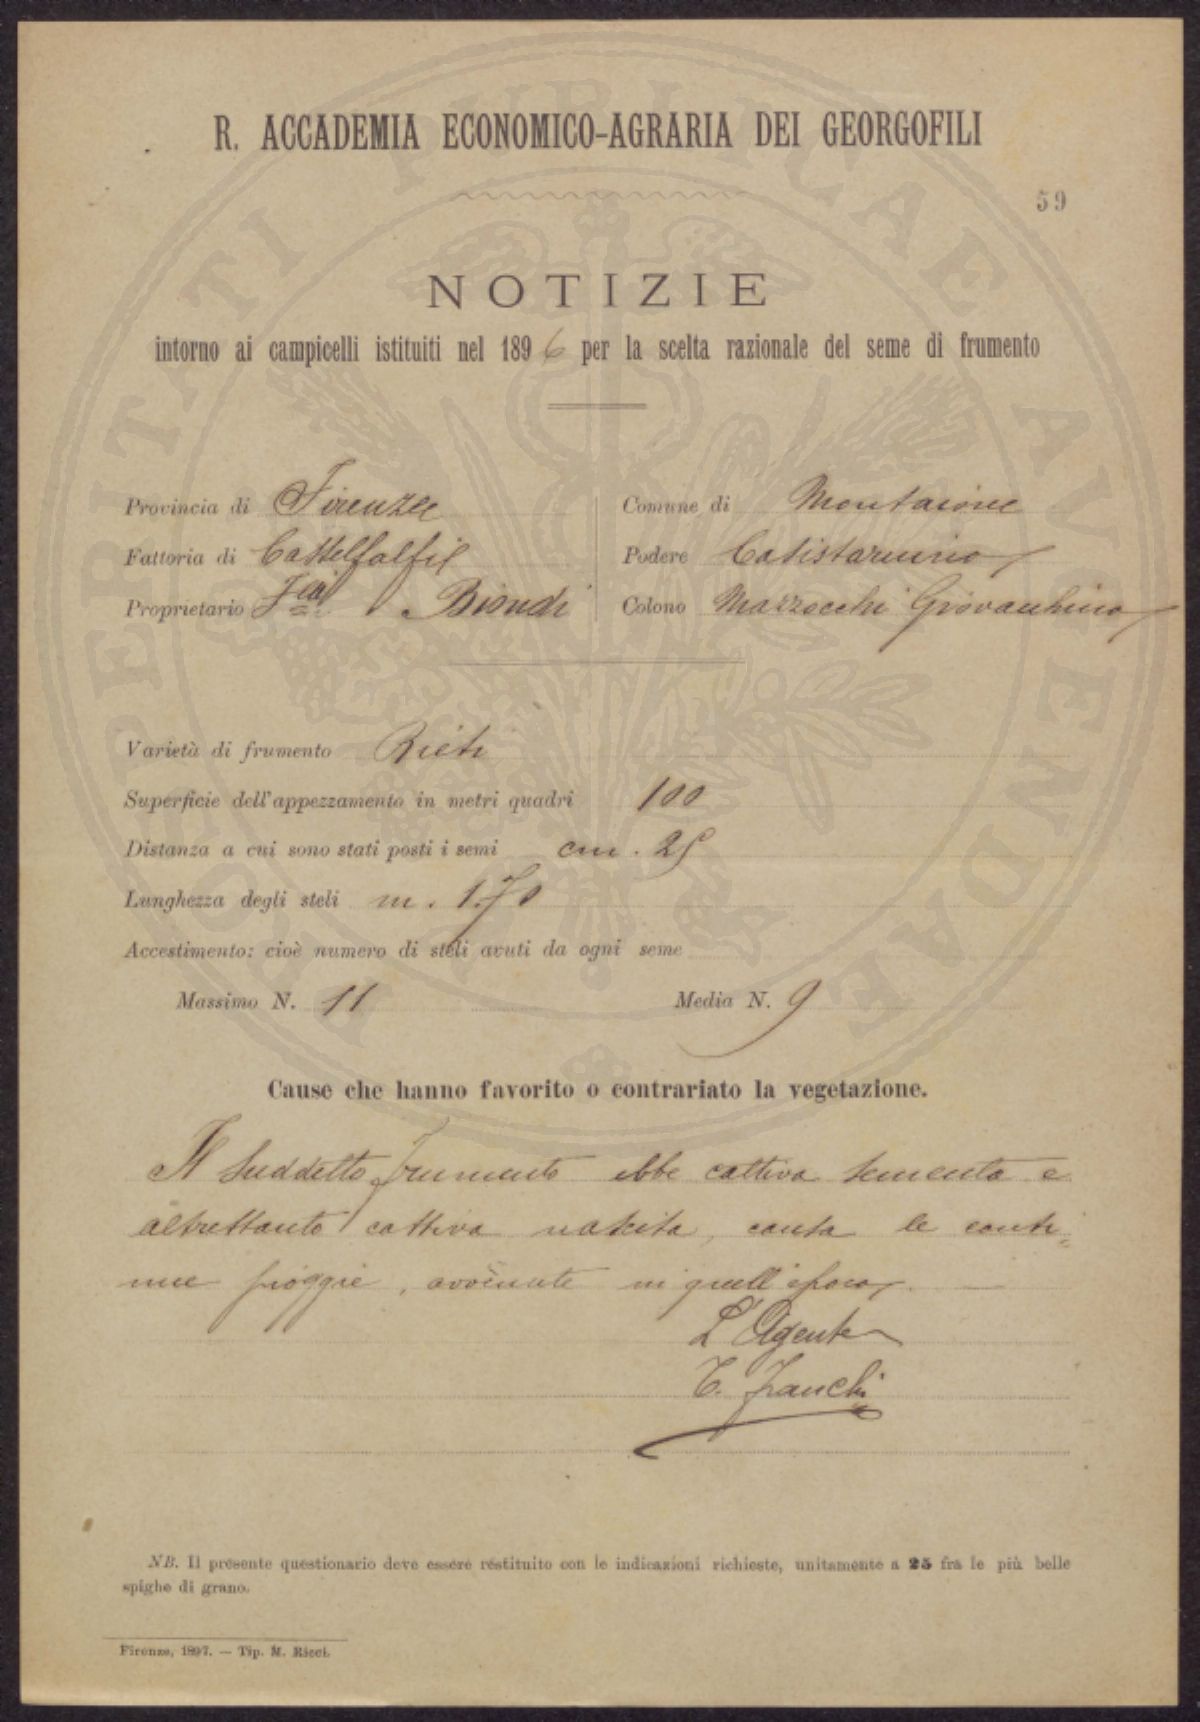 R. ACCADEMIA ECONOMICO-AGRARIA DEI GEORGOFILI
59
NOTIZIE
intorno ai campicelli istituiti nel 1896 per la scelta razionale del seme di frumento
Provincia di Firenze
Comune di Montaione
Fattoria di Castelfalfi
Podere
Proprietario Biondi
Colono Mazzocchi Giovanchino
Varietà di frumento Rieti
Superficie dell'appezzamento in metri quadri 100
Distanza a cui sono stati posti i semi cm. 25
Lunghezza degli steli m. 1.70
Accestimento: cioè numero di steli avuti da ogni seme
Massimo N. 11 Media N. 9
Cause che hanno favorito o contrariato la vegetazione.
Il suddetto frumento ebbe cattiva sementa e
altrettanto cattiva nascita, causa le conti=
nue pioggie, avvenute in quell'epoca. —
L'Agente
T. Franchi
NB. Il presente questionario deve essere restituito con le indicazioni richieste, unitamente a 25 fra le più belle
spighe di grano.
Firenze, 1897. — Tip. M. Ricci.
PROSPERITATI PUBLICAE AVGENDAE